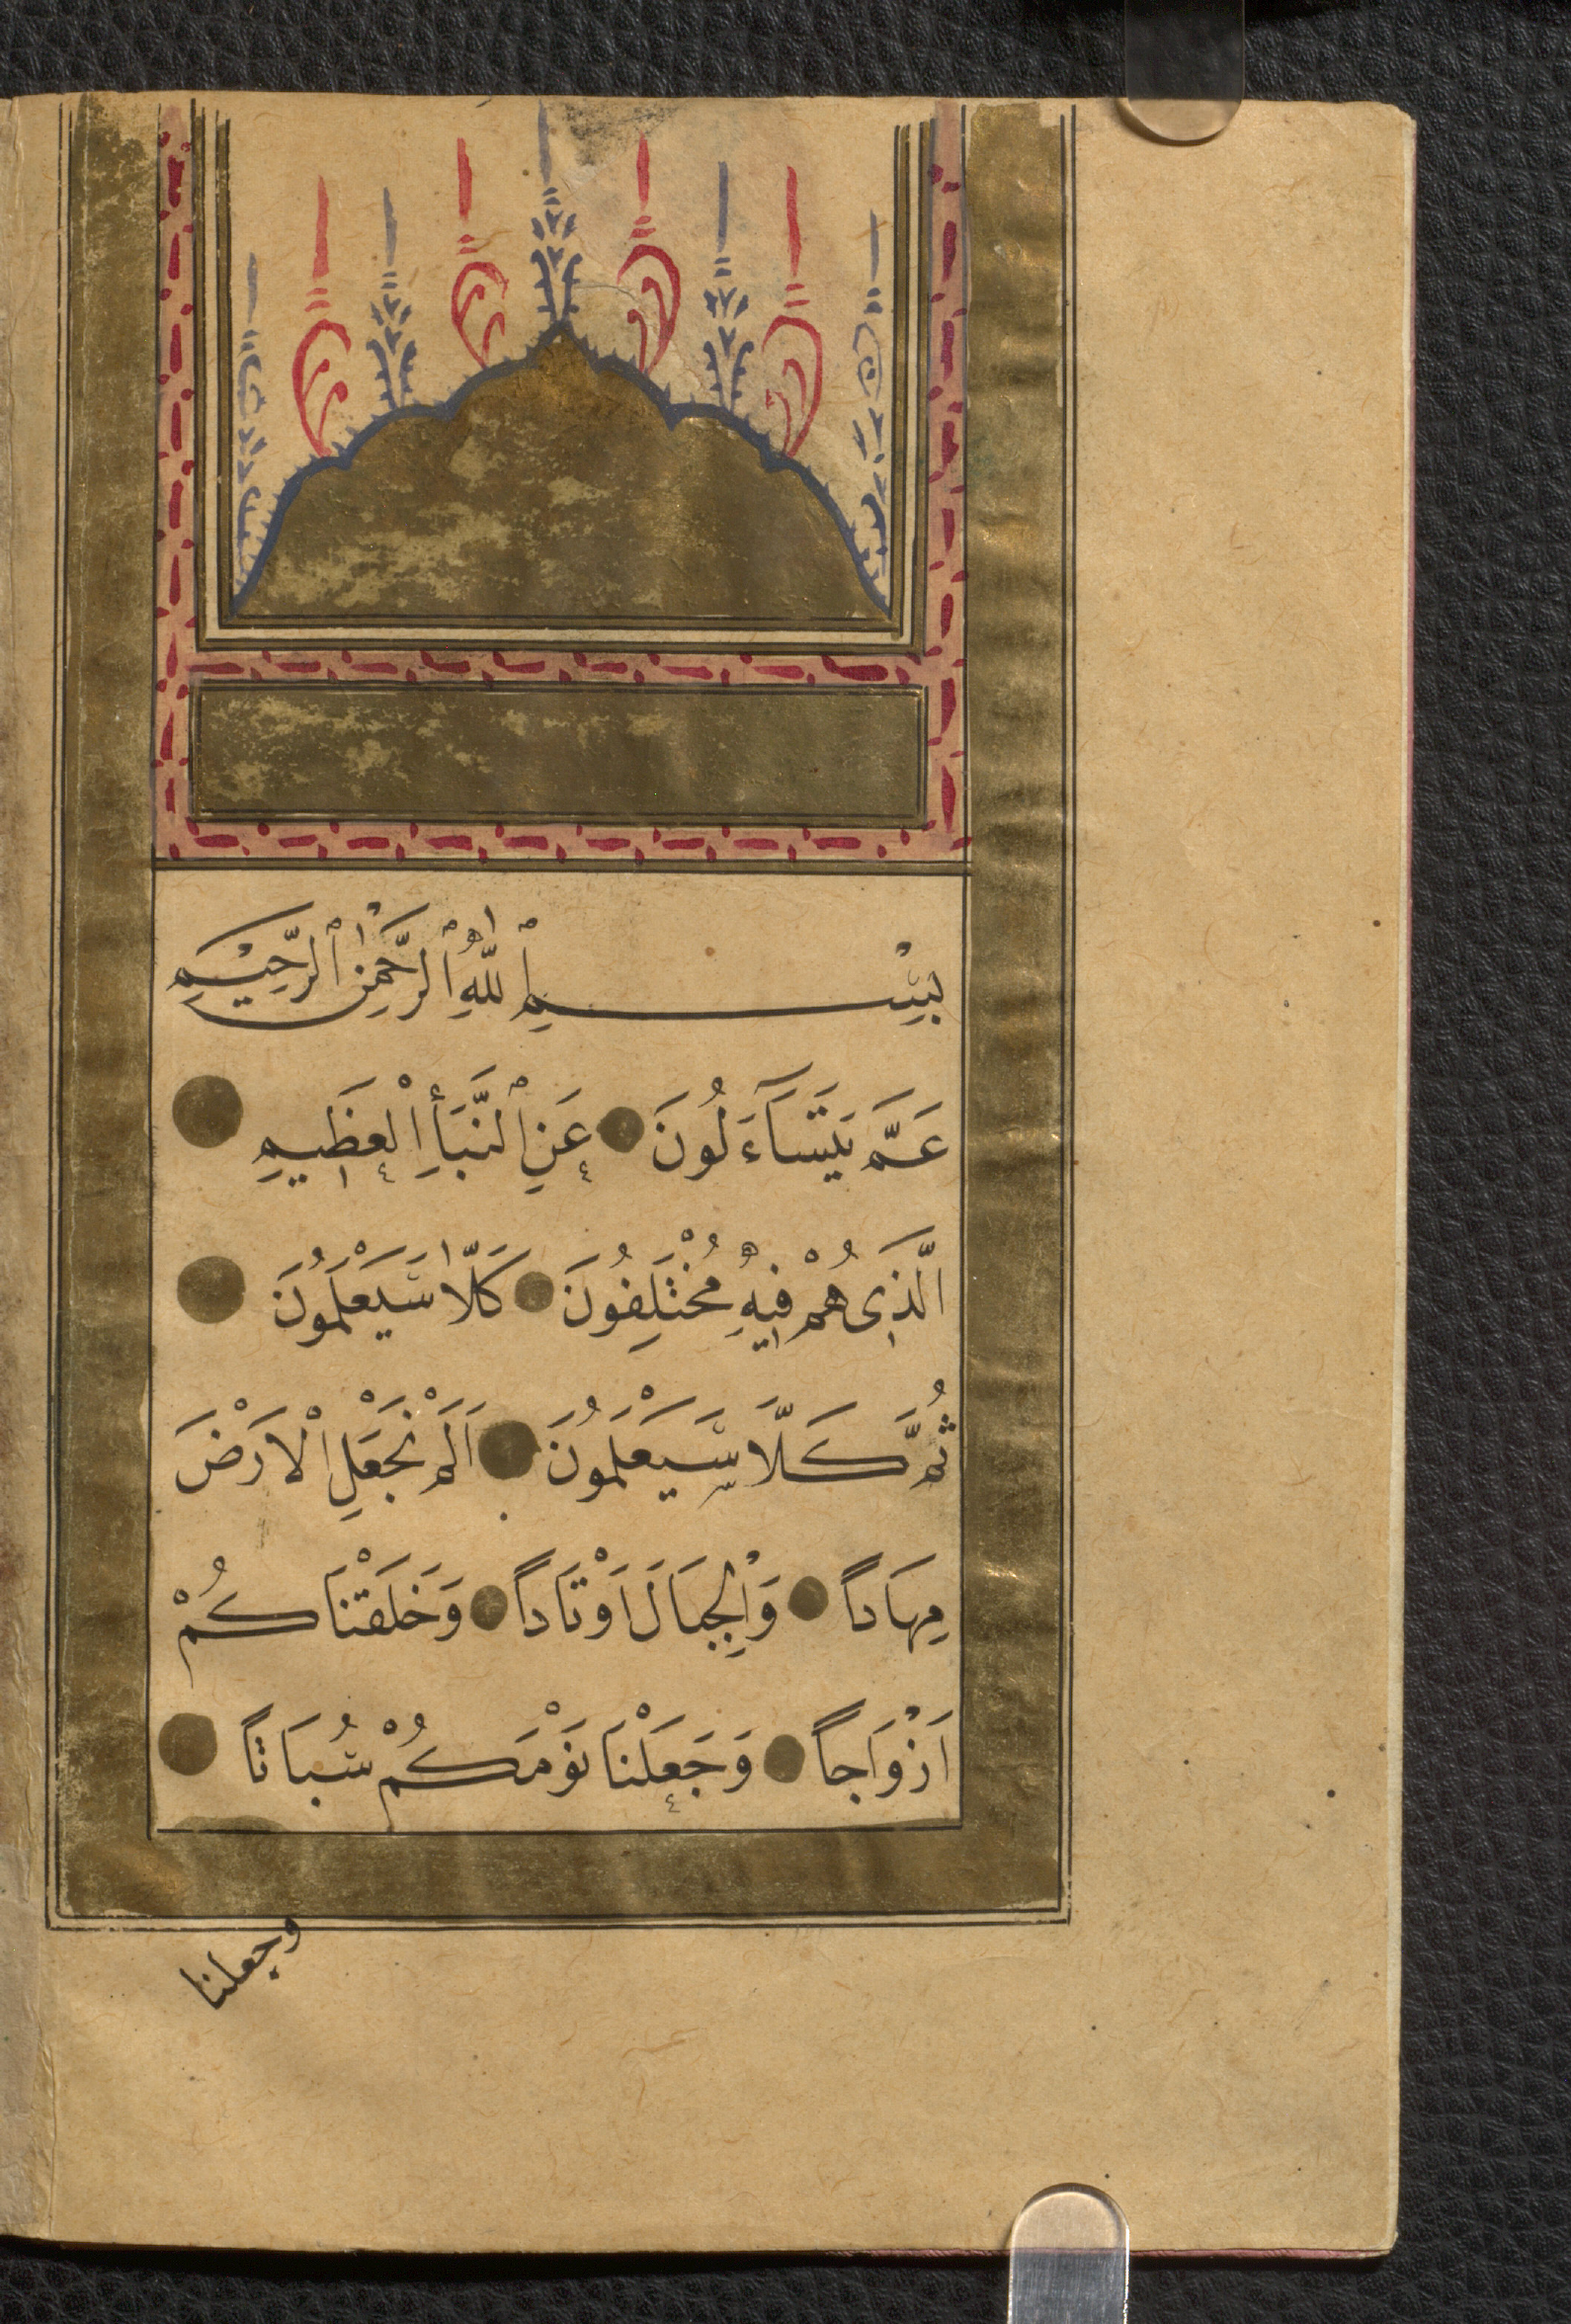 بِسْمِ ٱللّٰهِ ٱلرَّحْمٰنِ ٱلرَّحِيْمِ
عَمَّ يَتَسَآءَلُونَ عَنِ ٱلنَّبَأِ الْعَظِيمِ
الَّذِى هُمْ فِيهِ مُخْتَلِفُونَ كَلَّا سَيَعْلَمُونَ
ثُمَّ كَلَّا سَيَعْلَمُونَ اَلَمْ نَجْعَلِ الْاَرْضَ
مِهَاداً وَالْجِبَالَ اَوْتَاداً وَخَلَقْنَاكُمْ
اَزْوَاجاً وَجَعَلْنَا نَوْمَكُمْ سُبَاتاً
وجعلنا